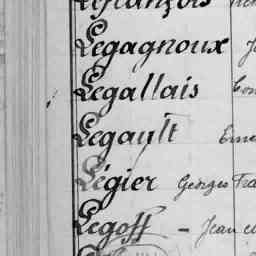 Lefrançois
Legagnoux
Legallais
Legault Erne
Légier Georges Fra
Legoff - Jean